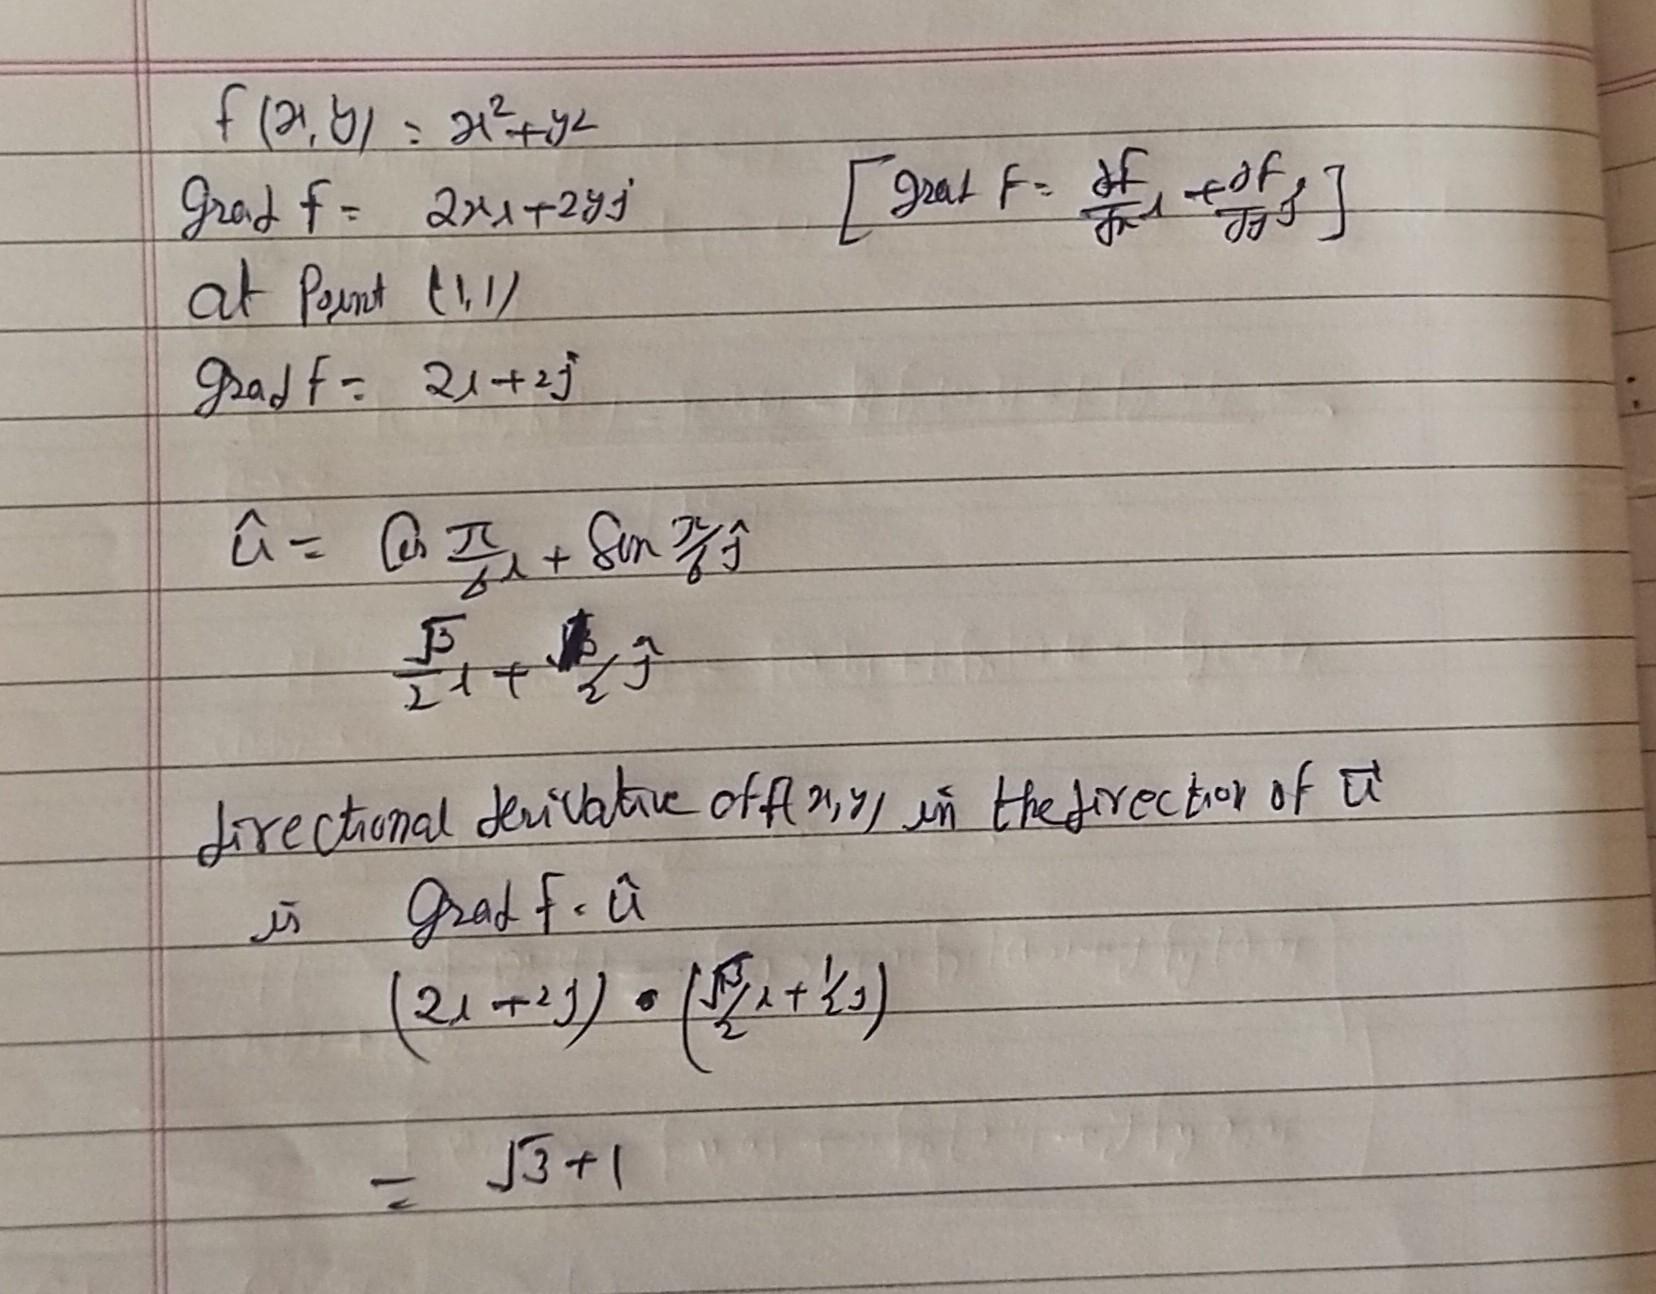 f(x,y) = x²+y²
grad f = 2xi+2yj [grad F = ∂f/∂x i + ∂f/∂y j]
at Point (1,1)
grad f = 2i+2j
û = Cos π/6 i + Sin π/6 ĵ
√3/2 i + 1/2 ĵ
directional derivative of f(x,y) in the direction of u⃗
is grad f . û
(2i+2j) • (√3/2 i + 1/2 j)
= √3+1